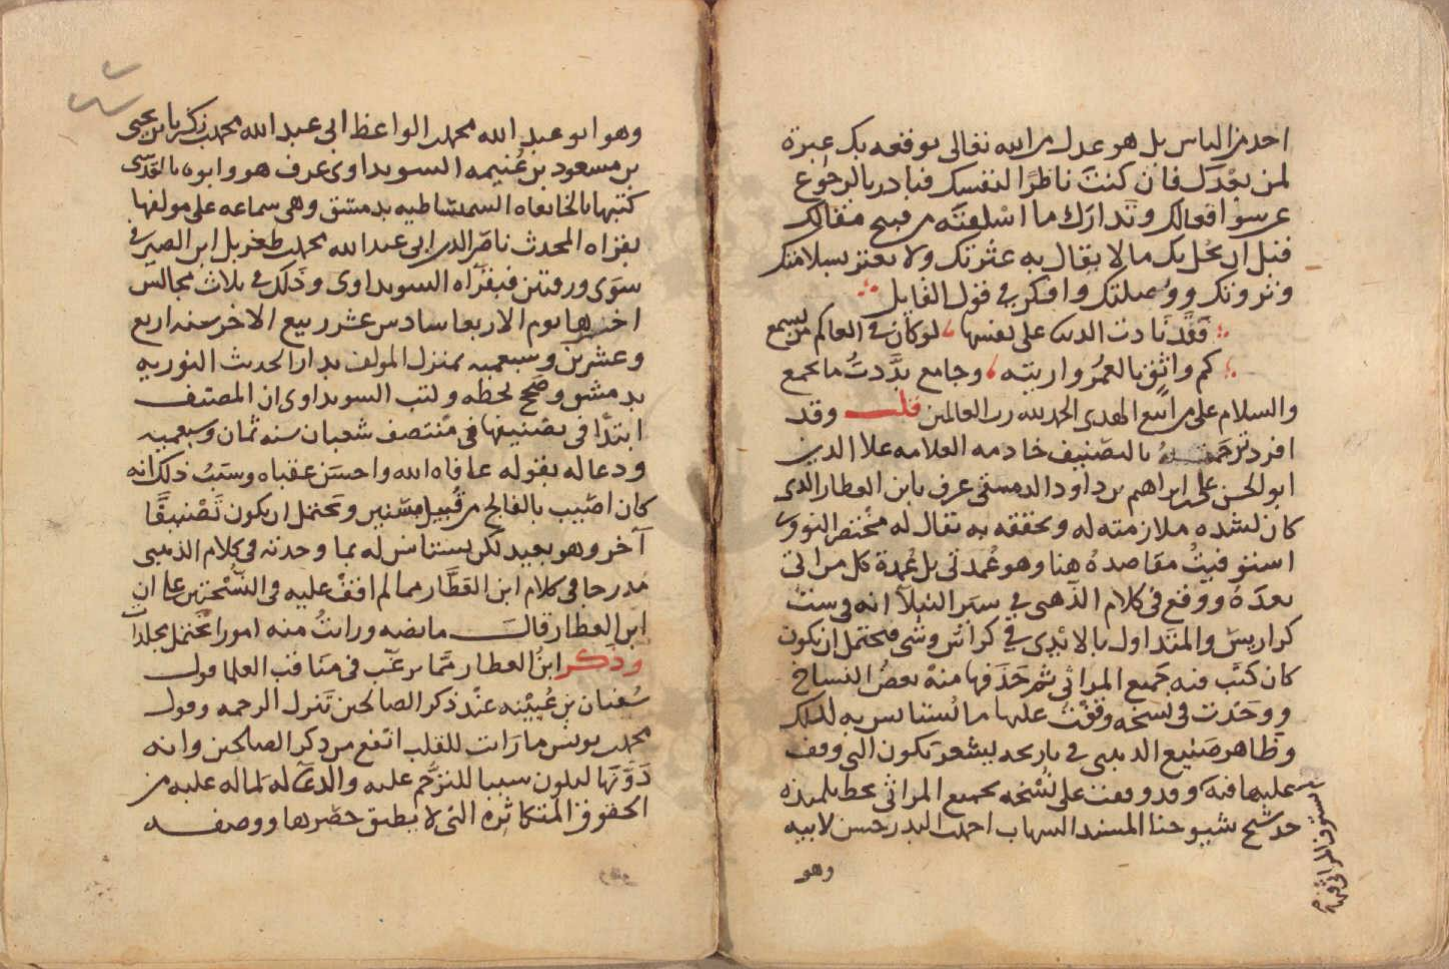 احد من الناس بل هو عدل من الله تعالى يوقعه بك عبرة
لمن بعدك فان كنت ناظرًا لنفسك فبادر بالرجوع
عن سوء افعالك وتدارك ما اسلفته من قبيح مقالك
قبل ان يحل بك ما لا يقال به عثرتك ولا يغتر بسلامتك
وثروتك ووصلتك وافكر في قول القايل
فقد نادت الدنيا على نفسها لو كان في العالم من يسمع
كم واثق بالعمر واريته وجامع بددت ما يجمع
والسلام على من اتبع الهدى الحمد لله رب العالمين قلت وقد
افرد ترجمته بالتصنيف خادمه العلامه علا الدين
ابو الحسن على بن ابراهيم بن داود الدمشقي عرف بابن العطار الذي
كان لشده ملازمته له وتحققه به يقال له مختصر النووي
استوفيت مقاصده هنا وهو عمدتي بل عمدة كل من اتى
بعده ووقع في كلام الذهبي في سير النبلا انه في ست
كراريس والمتداول بالايدي في كراس وشي فيحتمل ان يكون
كان كتب فيه جميع المراثي ثم حذفها منه بعض النساخ
ووجدت في نسخه وقفت عليها ما يستانس به لذلك
وظاهر صنيع الذهبي في تاريخه ليشعر بكون التي وقف
عليها فيه وقد وقفت على نسخه بجميع المراثي بخط تلميذه
جد شيخ شيوخنا المسند الشهاب احمد البدر حسن لابيه
وهو
وهو ابو عبد الله محمد الواعظ ابي عبد الله محمد بن زكريا بن يحيى
بن مسعود بن غنيمه السويداوي عرف هو وابوه بالقدسي
كتبها بالخانقاه السمشاطيه بدمشق وهي سماعه على مولفها
بقراه المحدث ناصر الدين ابي عبد الله محمد طغربل ابن الصيرفي
سوى ورقتين فبقراه السويداوي وذلك في ثلاث مجالس
اخرها يوم الاربعا سادس عشر ربيع الاخر سنه اربع
وعشرين وسبعميه بمنزل المولف بدار الحديث النوريه
بدمشق وصح بخطه وكتب السويداوي ان المصنف
ابتدا في تصنيفها في منتصف شعبان سنه ثمان وسبعميه
ودعا له بقوله عافاه الله واحسن عقباه وسبب ذلك انه
كان اصيب بالفالج من قبيل سنين ويحتمل ان يكون تصنيفا
آخر وهو بعيد لكن يستانس له بما وجدته في كلام الذهبي
مدرجا في كلام ابن العطار مما لم اقف عليه في النسختين على ان
ابن العطار قال ما نصه ورايت منه امورا تحتمل مجلدات
وذكر ابن العطار مما يرغب في مناقب العلما قول
سفيان بن عيينه عند ذكر الصالحين تنزل الرحمه وقول
محمد بن يونس ما رايت للقلب انفع من ذكر الصالحين وانه
دونها ليكون سببا للترحم عليه والدعا له لما له عليه من
الحقوق المتكاثره التي لا يطيق حصرها ووصفه